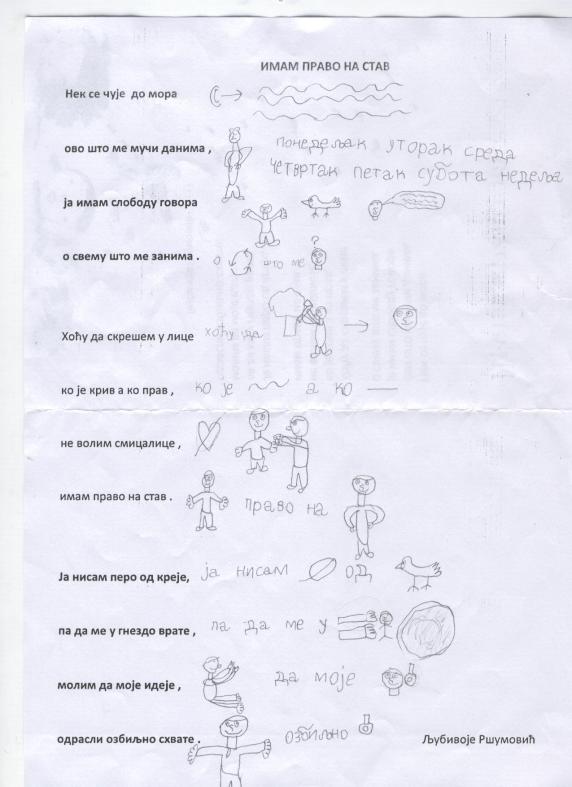 ИМАМ ПРАВО НА СТАВ
Нек се чује до мора
ово што ме мучи данима ,
понедељак уторак среда
четвртак петак субота недеља
ја имам слободу говора
о свему што ме занима .
о што ме ?
Хоћу да скрешем у лице
хоћу да
ко је крив а ко прав ,
ко је а ко
не волим смицалице ,
имам право на став .
право на
Ја нисам перо од креје,
ја нисам од
па да ме у гнездо врате ,
па да ме у
молим да моје идеје ,
да моје
одрасли озбиљно схвате .
озбиљно
Љубивоје Ршумовић